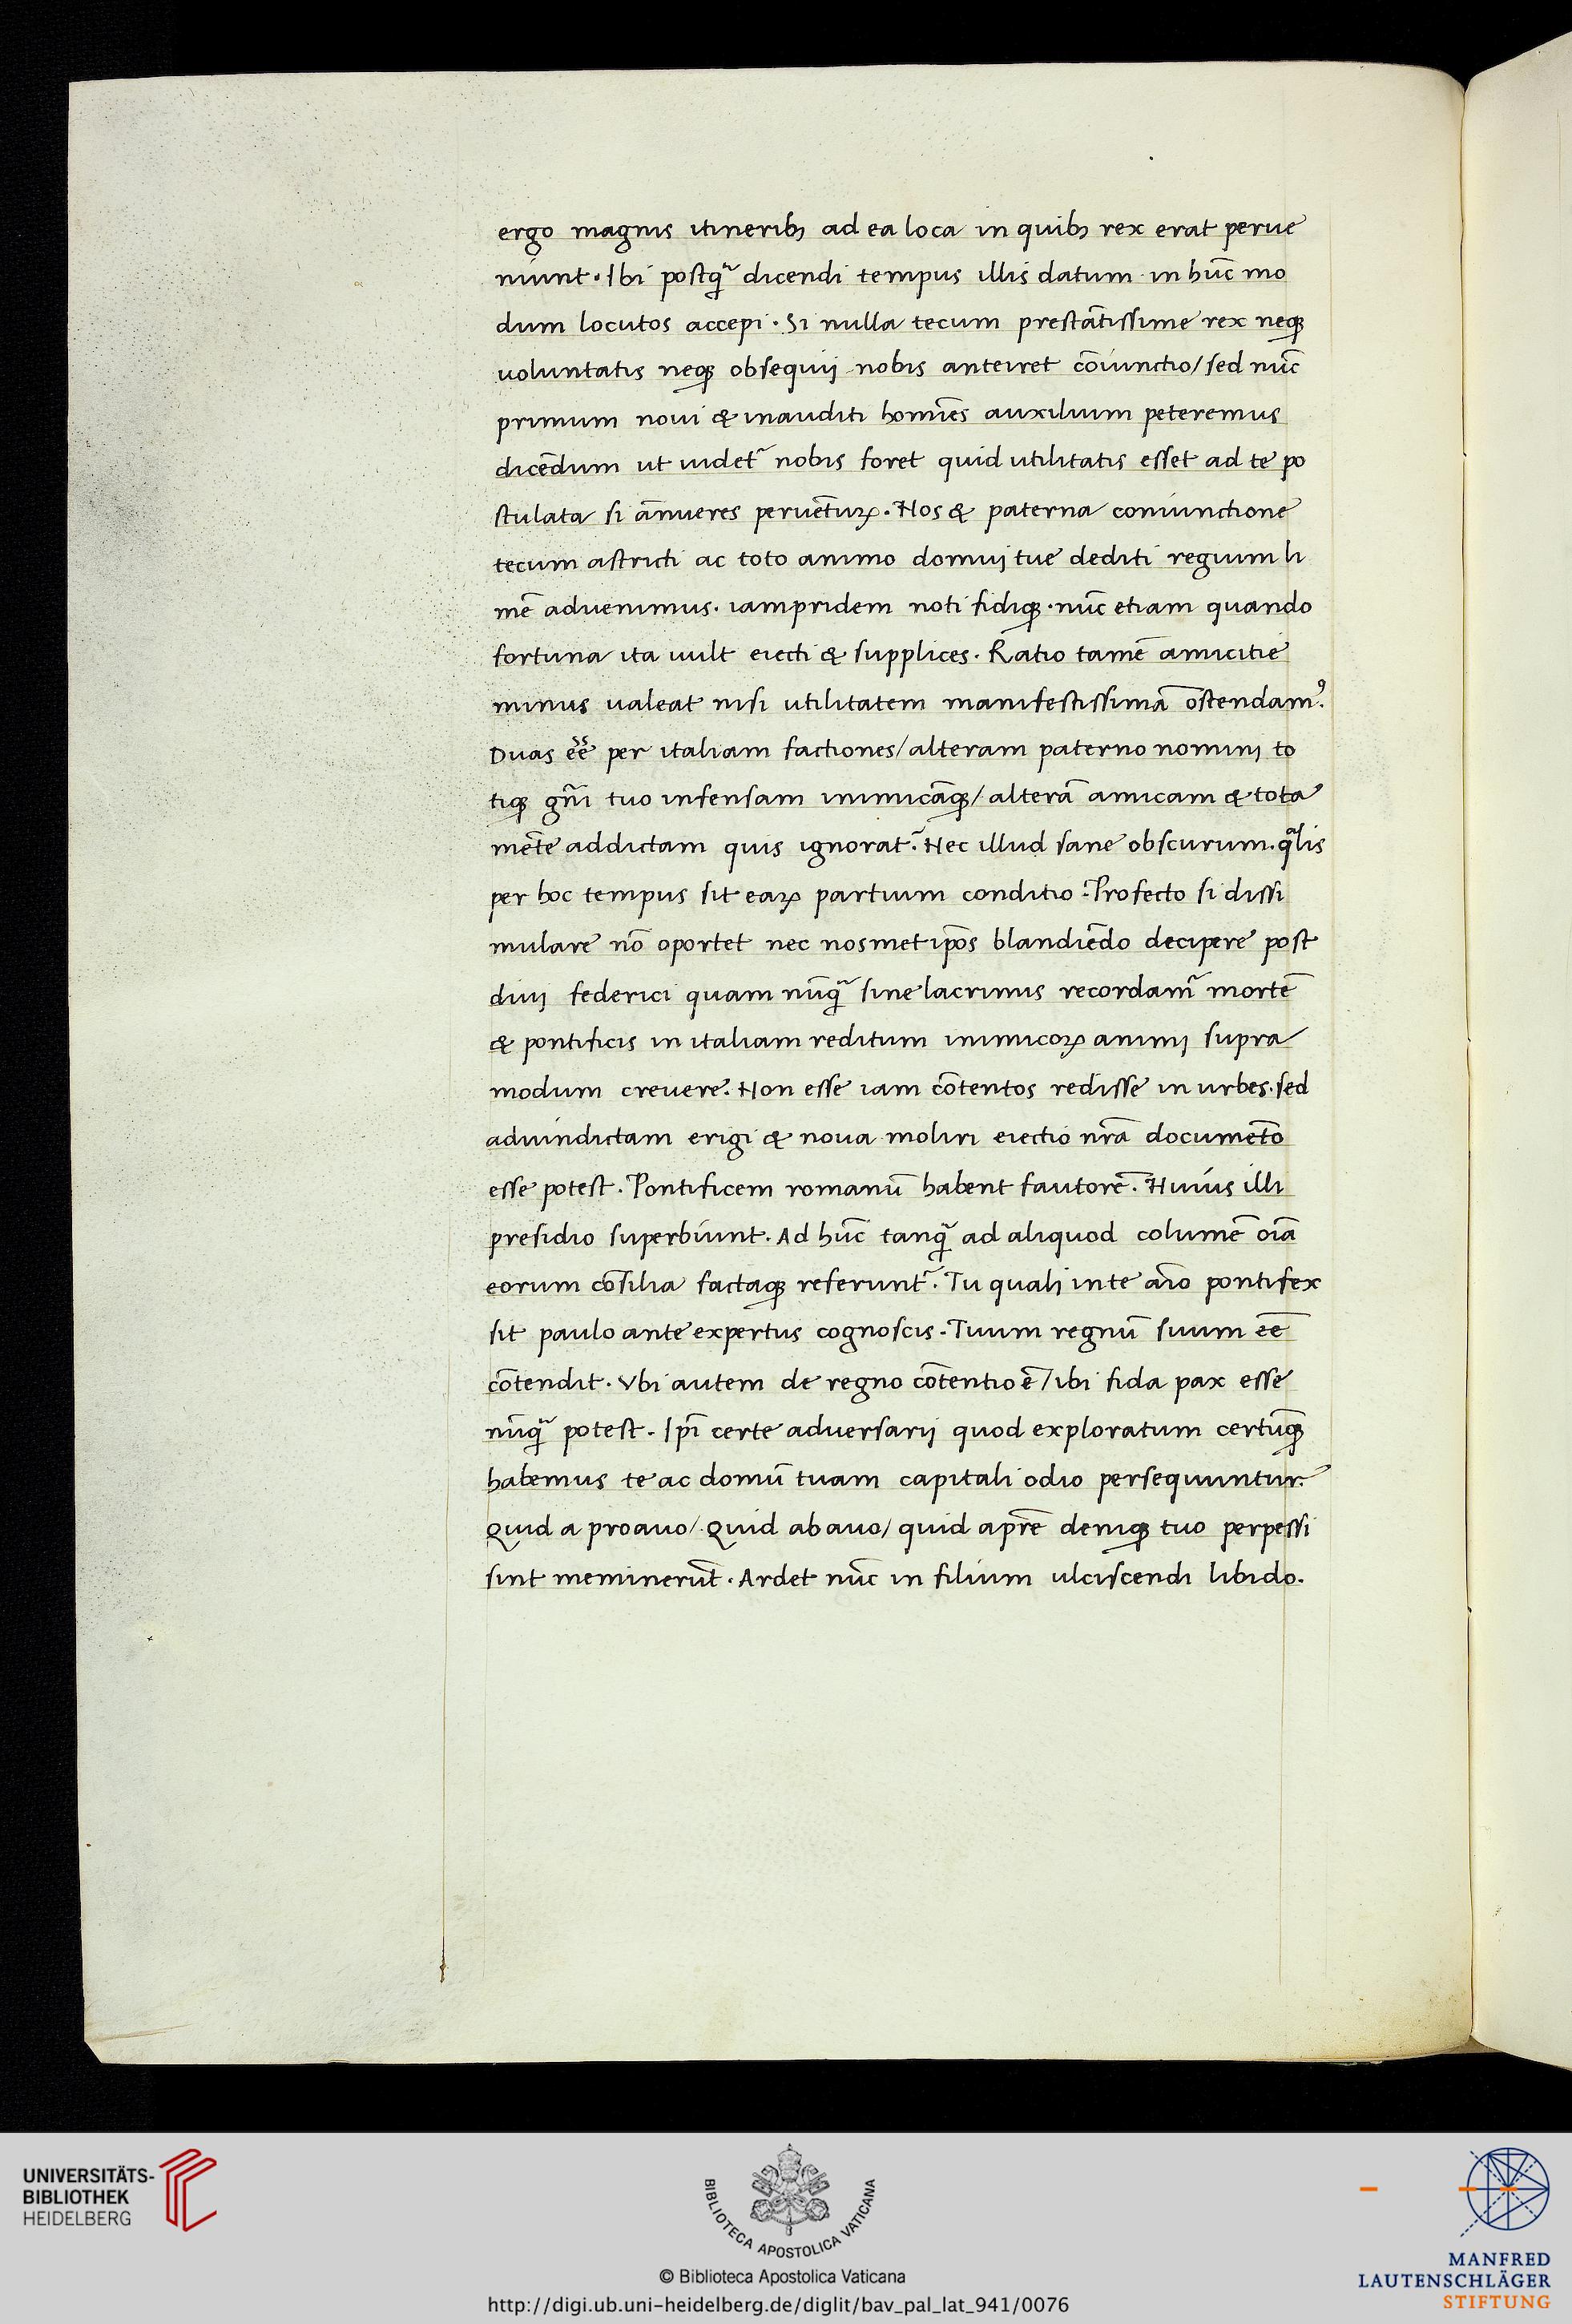 ergo magnis itineribꝫ ad ea loca in quibꝫ rex erat perue
niunt. Ibi postq̃ dicendi tempus illis datum in hūc mo
dum locutos accepi. Si nulla tecum prestātissime rex neqꝫ
uoluntatis neqꝫ obsequij nobis anteiret cōiunctio/ sed nūc
primum noui & inauditi homīes auxilium peteremus
dicēdum ut uidet᷑ nobis foret quid utilitatis esset ad te po
stulata si ānueres peruētuꝝ. Nos & paterna coniunctione
tecum astricti ac toto animo domuj tue dediti regium li
mē aduenimus. iampridem noti fidiqꝫ. nūc etiam quando
fortuna ita uult eiecti & supplices. Ratio tamē amicitie
minus ualeat nisi utilitatem manifestissimā ostendamꝰ.
Duas ēe per italiam factiones/ alteram paterno nominj to
tiqꝫ gn̄i tuo infensam inimicāqꝫ/ alterā amicam & tota
mēte addictam quis ignorat. Nec illud sane obscurum. qͣlis
per hoc tempus sit eaꝝ partium conditio. Profecto si dissi
mulare nō oportet nec nosmet ip̄os blandiēdo decipere post
diuj federici quam nūq̃ sine lacrimis recordam᷑ mortē
& pontificis in italiam reditum inimicoꝝ animj supra
modum creuere. Non esse iam cōtentos redisse in urbes. sed
aduindictam erigi & noua moliri eiectio nr̄a documēto
esse potest. Pontificem romanū habent fautorē. Huius illi
presidio superbiunt. Ad hūc tanq̃ ad aliquod columē oīa
eorum cōsilia factaqꝫ referunt᷑. Tu qualj in te aīo pontifex
sit paulo ante expertus cognoscis. Tuum regnū suum ēe
cōtendit. Vbi autem de regno cōtentio ē/ ibi fida pax esse
nūq̃ potest. Ip̄i certe aduersarij quod exploratum certūqꝫ
habemus te ac domū tuam capitali odio persequuntur.
Quid a proauo/ Quid ab auo/ quid a pr̄e deniqꝫ tuo perpessi
sint meminerūt. Ardet nūc in filium ulciscendi libido.
UNIVERSITÄTS-
BIBLIOTHEK
HEIDELBERG
BIBLIOTECA APOSTOLICA VATICANA
© Biblioteca Apostolica Vaticana
http://digi.ub.uni-heidelberg.de/diglit/bav_pal_lat_941/0076
MANFRED
LAUTENSCHLÄGER
STIFTUNG